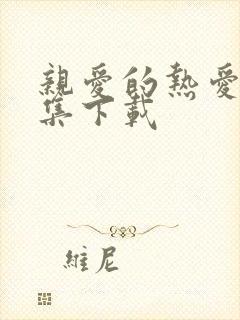 親愛的熱愛
集下載
維尼